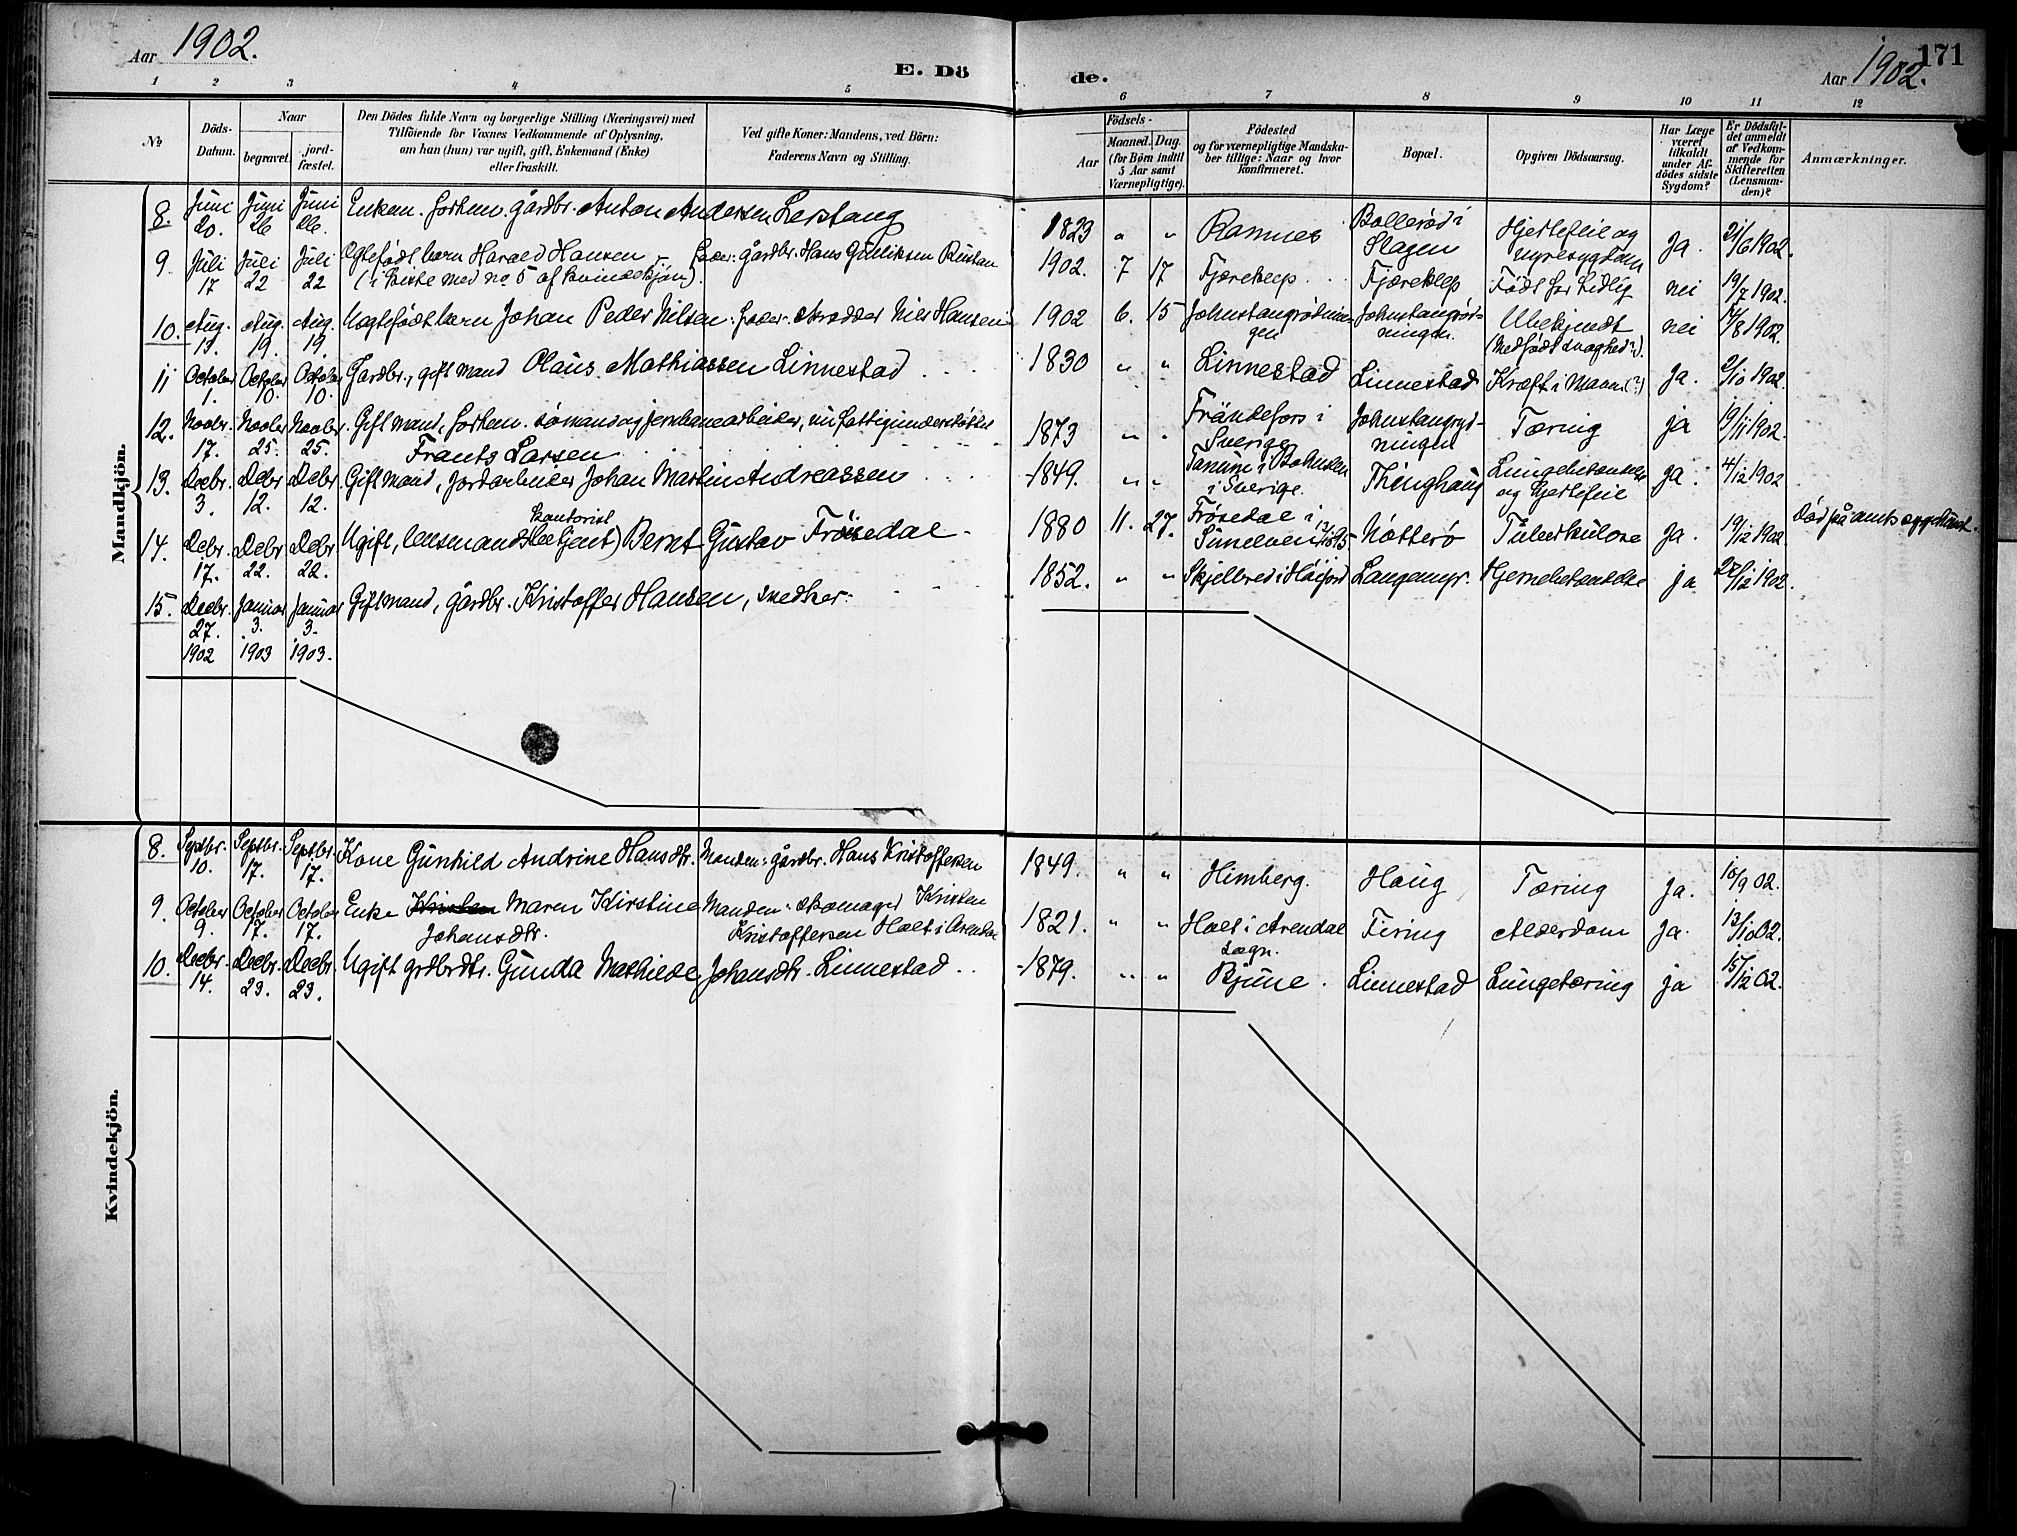 Aar 1902.
E. Dö
de.
Aar 1902.
171
1 2 3 4 5 6 7 8 9 10 11 12
No
Döds-
Datum.
Naar
begravet.
jord-
fæstet.
Den Dödes fulde Navn og borgerlige Stilling (Næringsvei) med
Tilföiende for Voxnes Vedkommende af Oplysning,
om han (hun) var ugift, gift, Enkemand (Enke)
eller fraskilt.
Ved gifte Koner: Mandens, ved Börn:
Faderens Navn og Stilling.
Födsels-
Aar
Maaned. Dag.
(for Börn indtil
5 Aar samt
Værnepligtige).
Födested
og for værnepligtige Mandska-
ber tillige: Naar og hvor
konfirmeret.
Bopæl.
Opgiven Dödsaarsag.
Har Læge
været
tilkaldt
under Af-
dödes sidste
Sygdom?
Er Dödsfal-
det anmeldt
af Vedkom-
mende for
Skifteretten
(Lensman-
den)?
Anmærkninger.
Mandkjön.
8. Juni 20. Juni 26 Juni 26. Enkem. forhen gårdbr. Anton Andersen Lerstang 1823 " " Ramnes Bollerød i Slagen Hjertefeil og nyresygdom Ja. 21/6 1902.
9. Juli 17 Juli 22 Juli 22 Ægtefødt barn Harald Hansen - Fader: Gårdbr. Hans Gulliksen Rustan
(i kiste med no 5 af kvindekjøn). 1902. 7 17 Fjæreklep Fjærekleep Født for tidlig nei 19/7 1902.
10. Aug. 13. Aug. 19. Aug. 19. Uægtefødt barn Johan Peder Nilsen: fader: skrædder Niels Hansen 1902 6. 15 Johnstangrødningen Johnstangrødningen. Ubekjendt (Medfødt svaghed?). nei 14/8 1902.
11 October 1. October 10. October 10. Gårdbr., gift mand Olaus Mathiassen Linnestad 1830 " " Linnestad Linnestad Kræft i maven(?) Ja. 2/10 1902.
12. Novbr. 17. Novbr. 25. Novbr. 25. Gift mand, forhen. sømand og jernbanearbeider, nu fattigunderstøttet
Frants Larsen 1873 " " Frändefors i Sverige Johnstangrydningen Tæring ja 19/11 1902.
13. Decbr. 3. Debr 12. Debr 12. Gift mand, Jordarbeider Johan Martin Andreassen 1849. " " Tanum i Bohuslen i Sverige. Thinghaug Lungebetændelse og Hjertefeil ja. 4/12 1902
14. Debr. 17. Debr 22. Debr 22. Ugift, lensmands kontorist Bernt Gustav Frøisedal 1880 11. 27. Frøsedal i Nøtterø Tuberkulose Ja. 19/12 1902. Død på amtssygehuset.
15. Decbr. 27. 1902 Januar 3. 1903 Januar 3. 1903. Gift mand, gårdbr. Kristoffer Hansen, snedker. 1852. " " Skjelbred i Langemyr. Hjernebetændelse ja 29/12 1902.
Kvindekjön.
8. Septbr. 10. Septbr. 17. Septbr. 17. Kone Gunhild Andrine Hansdtr. Manden: gårdbr. Hans Kristoffersen 1849. " " Himberg. Haug Tæring Ja. 10/9 02.
9. October 9. October 17. October 17. Enke Kristen Maren Kirstine Johansdtr. Manden: skomager Kristen Kristoffersen Holt i Arendal 1821. " " Holt i Arendal sogn. Firing Alderdom Ja. 13/10 02.
10. Decbr. 14. Decbr. 23. Decbr. 23. Ugift grdbrdtr. Gunda Mathilde Johansdtr. Linnestad 1879. " " Bjune. Linnestad Lungetæring ja 15/12 02.